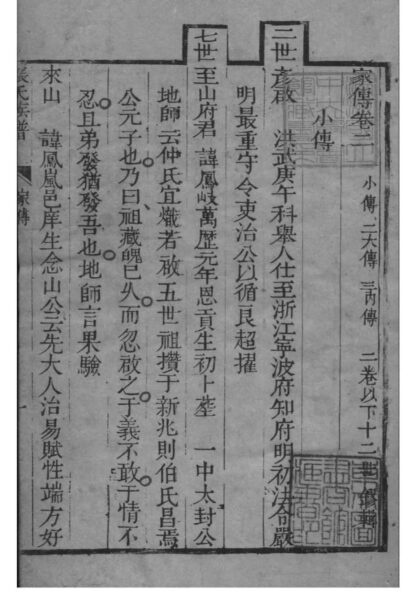 家傳卷二 小傳、二大傳 三內傳 二卷以下十二世
小傳
二世 彥啟 洪武庚午科舉人仕至浙江寧波府知府明初法令嚴
明最重守令吏治公以循良超擢
七世 至山府君 諱鳳岐萬歷元年恩貢生初卜塟 一中太封公
地師云仲氏宜熾若啟五世祖攢于新兆則伯氏昌焉
公元子也乃曰祖藏魄已久而忽啟之于義不敢于情不
忍且弟發猶發吾也地師言果驗
來山 諱鳳嵐邑庠生念山公云先大人治易賦性端方好
氏族譜 家傳